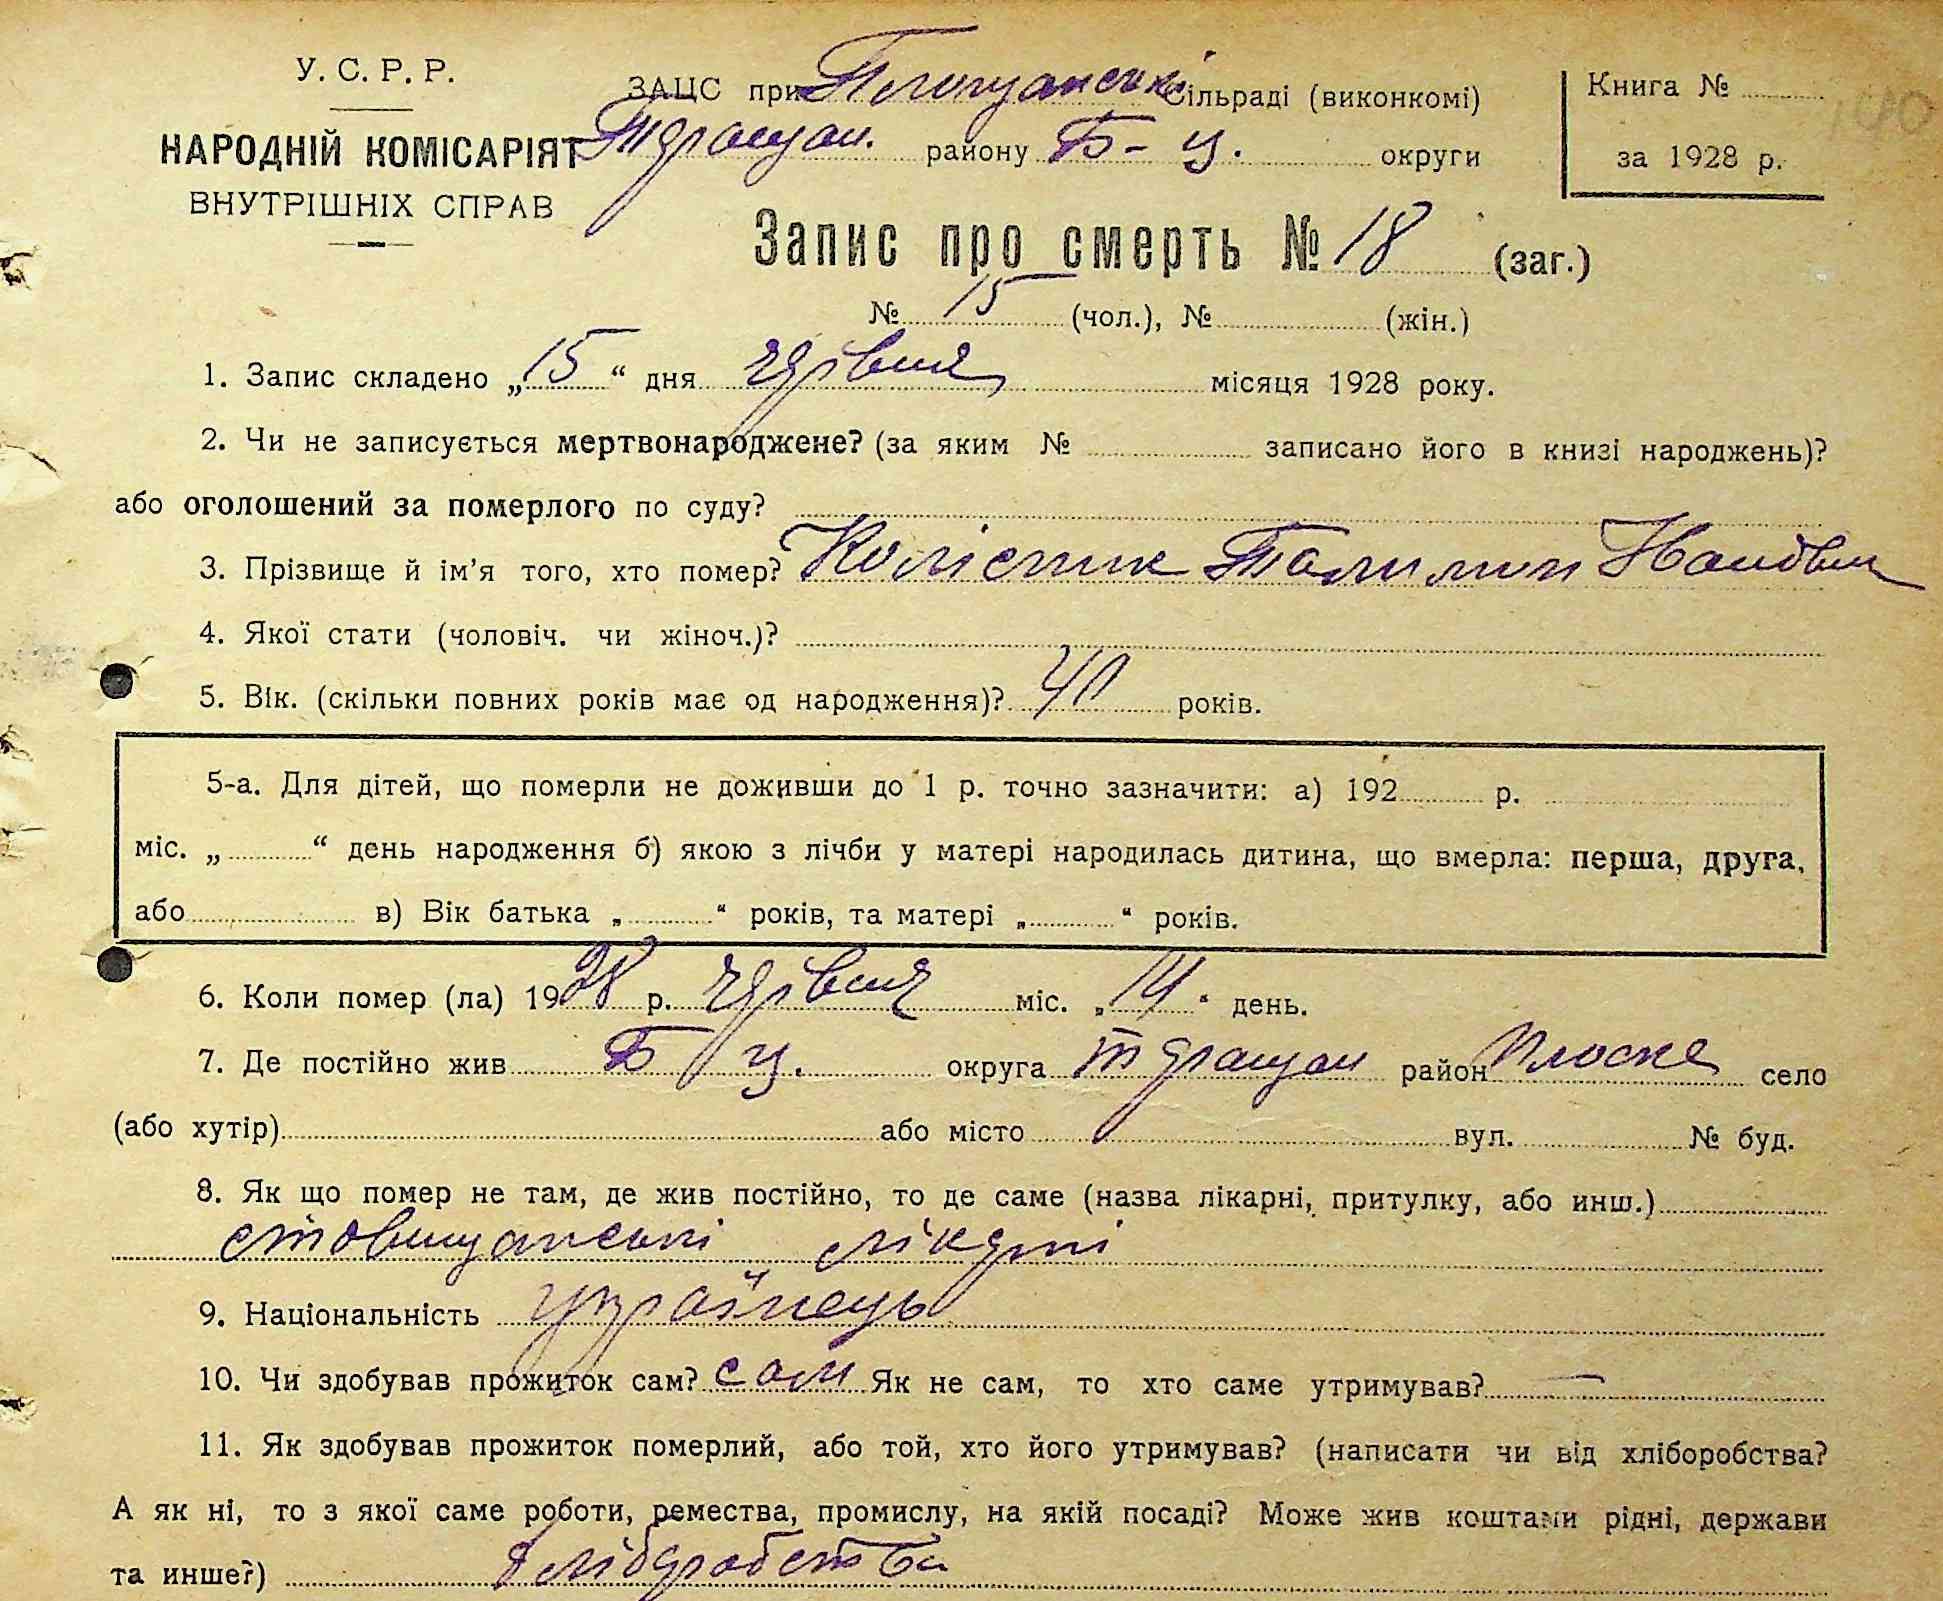 У. С. Р. Р.
НАРОДНІЙ КОМІСАРІЯТ
ВНУТРІШНІХ СПРАВ
ЗАЦС при сільраді (виконкомі)
району Б-Ц. округи
Книга №
140
за 1928 р.
Запис про смерть № 18 (заг.)
№ 15 (чол.), № (жін.)
1. Запис складено „15“ дня місяця 1928 року.
2. Чи не записується мертвонароджене? (за яким № записано його в книзі народжень)?
або оголошений за померлого по суду?
3. Прізвище й ім’я того, хто помер? Колісник
4. Якої стати (чоловіч. чи жіноч.)?
5. Вік. (скільки повних років має од народження)? 40 років.
5-а. Для дітей, що померли не доживши до 1 р. точно зазначити: а) 192 р.
міс. „ “ день народження б) якою з лічби у матері народилась дитина, що вмерла: перша, друга,
або в) Вік батька „ “ років, та матері „ “ років.
6. Коли помер (ла) 1928 р. міс. „14“ день.
7. Де постійно жив Б Ц. округа район Плоске село
(або хутір) або місто вул. № буд.
8. Як що помер не там, де жив постійно, то де саме (назва лікарні, притулку, або инш.)
9. Національність українець
10. Чи здобував прожиток сам? сам Як не сам, то хто саме утримував? —
11. Як здобував прожиток померлий, або той, хто його утримував? (написати чи від хліборобства?
А як ні, то з якої саме роботи, ремества, промислу, на якій посаді? Може жив коштами рідні, держави
та инше?) хліборобства